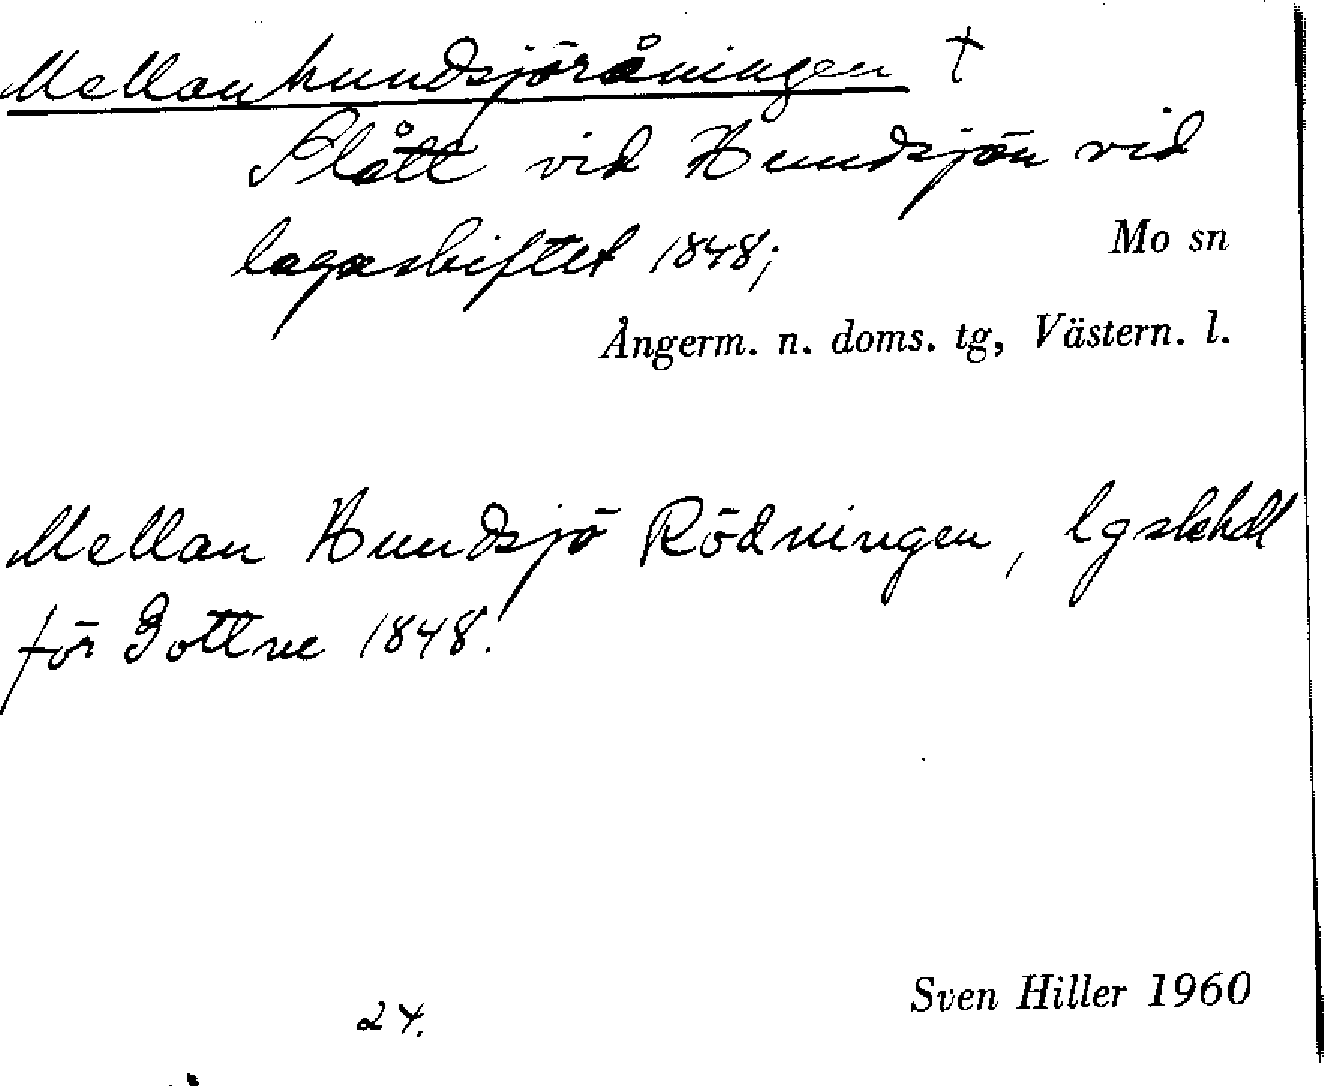 Mellanhundsjöråningen †
Slått vid Hundsjön vid
lagaskiftet 1848;
Mo sn
Ångerm. n. doms. tg, Västern. l.
Mellan Hundsjö Rödningen, lgskhdl
för Gottne 1848.
24.
Sven Hiller 1960